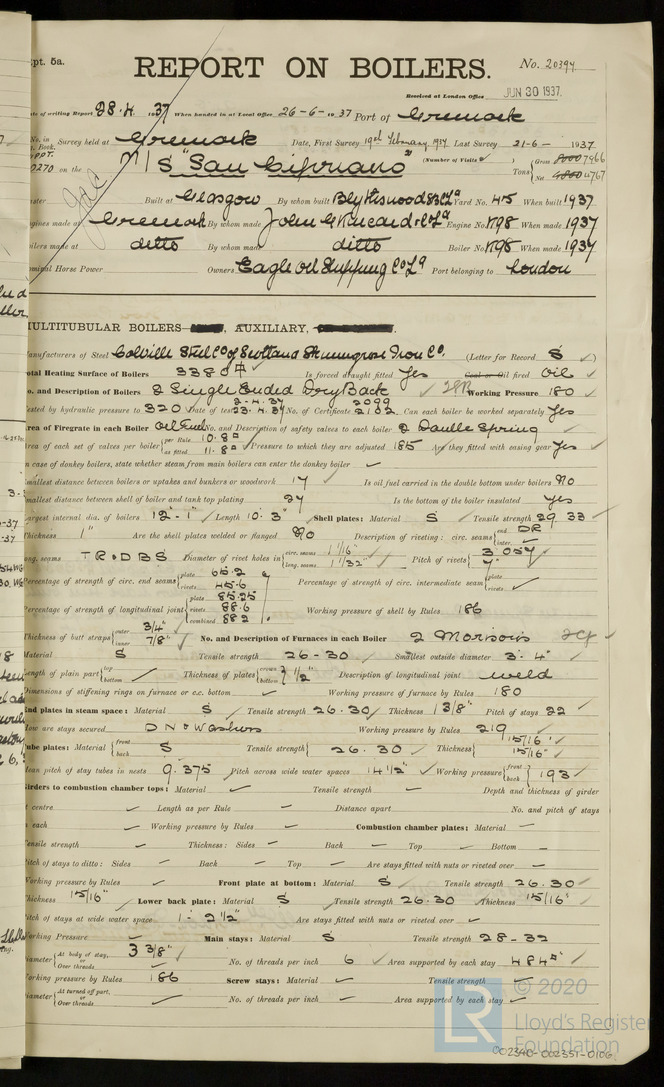 pt. 5a.
REPORT ON BOILERS.
No. 20394
Received at London Office JUN 30 1937.
te of writing Report 28.4.1937 When handed in at Local Office 26-6-1937 Port of Greenock
No. in Survey held at Greenock Date, First Survey 19th February 1937 Last Survey 21-6- 1937
Book.
0270 on the M/S "San Cipriano" (Number of Visits ) Tons Gross 7966 Net 4767
ster Built at Glasgow By whom built Blythswood SB Co Ld Yard No. 45 When built 1937
ngines made at Greenock By whom made John G Kincaid & Co Ld Engine No. K98 When made 1937
ilers made at ditto By whom made ditto Boiler No. K98 When made 1937
minal Horse Power Owners Eagle Oil Shipping Co Ld Port belonging to London
MULTITUBULAR BOILERS— , AUXILIARY,
anufacturers of Steel Colville Steel Co of Scotland Steel Iron Co. (Letter for Record S )
otal Heating Surface of Boilers 3380 Is forced draught fitted Yes Coal or Oil fired Oil
o. and Description of Boilers 2 Single Ended Dry Back Working Pressure 180
ested by hydraulic pressure to 320 Date of test 2-4-37 23.4.37 No. of Certificate 2099 2102 Can each boiler be worked separately Yes
rea of Firegrate in each Boiler Oil Fuel No. and Description of safety valves to each boiler 2 Double Spring
Area of each set of valves per boiler per Rule 10.8 as fitted 11.8 Pressure to which they are adjusted 185 Are they fitted with easing gear Yes
n case of donkey boilers, state whether steam from main boilers can enter the donkey boiler
mallest distance between boilers or uptakes and bunkers or woodwork 17 Is oil fuel carried in the double bottom under boilers No
mallest distance between shell of boiler and tank top plating 27 Is the bottom of the boiler insulated Yes
argest internal dia. of boilers 12'-1" Length 10'.3" Shell plates: Material S Tensile strength 29 33
Thickness 1" Are the shell plates welded or flanged No Description of riveting: circ. seams end DR inter.
ong. seams TR.DBS Diameter of rivet holes in circ. seams 1 1/16" long. seams 1 1/32" Pitch of rivets 3.057 7"
Percentage of strength of circ. end seams plate 65.2 rivets 45.6 Percentage of strength of circ. intermediate seam plate rivets
Percentage of strength of longitudinal joint plate 85.25 rivets 88.6 combined 88.2 Working pressure of shell by Rules 186
Thickness of butt straps outer 3/4" inner 7/8" No. and Description of Furnaces in each Boiler 2 Morisons
Material S Tensile strength 26-30 Smallest outside diameter 3'.4"
ength of plain part top bottom Thickness of plates crown bottom 1/2" Description of longitudinal joint weld
Dimensions of stiffening rings on furnace or c.c. bottom Working pressure of furnace by Rules 180
nd plates in steam space: Material S Tensile strength 26.30 Thickness 1 3/8" Pitch of stays 22
ow are stays secured DN & Washers Working pressure by Rules 219
ube plates: Material front back S Tensile strength 26.30 Thickness 15/16" 15/16"
ean pitch of stay tubes in nests 9.375 Pitch across wide water spaces 14 1/2" Working pressure front back 193
irders to combustion chamber tops: Material Tensile strength Depth and thickness of girder
t centre Length as per Rule Distance apart No. and pitch of stays
each Working pressure by Rules Combustion chamber plates: Material
ensile strength Thickness: Sides Back Top Bottom
itch of stays to ditto: Sides Back Top Are stays fitted with nuts or riveted over
orking pressure by Rules Front plate at bottom: Material S Tensile strength 26.30
hickness 15/16" Lower back plate: Material S Tensile strength 26.30 Thickness 15/16"
itch of stays at wide water space 1'-2 1/2" Are stays fitted with nuts or riveted over
orking Pressure Main stays: Material S Tensile strength 28-32
iameter At body of stay, or Over threads 3 3/8" No. of threads per inch 6 Area supported by each stay 484"
orking pressure by Rules 186 Screw stays: Material Tensile strength
iameter At turned off part, or Over threads No. of threads per inch Area supported by each stay
© 2020
LR Lloyd's Register
Foundation
002340-002351-0106